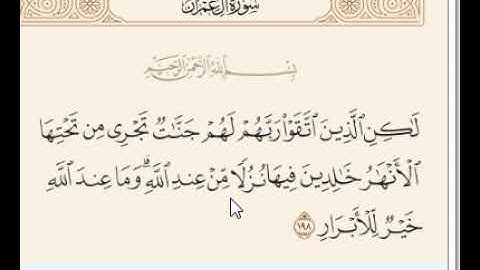 سُورَةُ آلِ عِمْرَانَ
بِسْمِ اللَّهِ الرَّحْمَٰنِ الرَّحِيمِ
لَٰكِنِ الَّذِينَ اتَّقَوْا رَبَّهُمْ لَهُمْ جَنَّاتٌ تَجْرِي مِن تَحْتِهَا
الْأَنْهَارُ خَالِدِينَ فِيهَا نُزُلًا مِّنْ عِندِ اللَّهِ ۗ وَمَا عِندَ اللَّهِ
خَيْرٌ لِّلْأَبْرَارِ ١٩٨